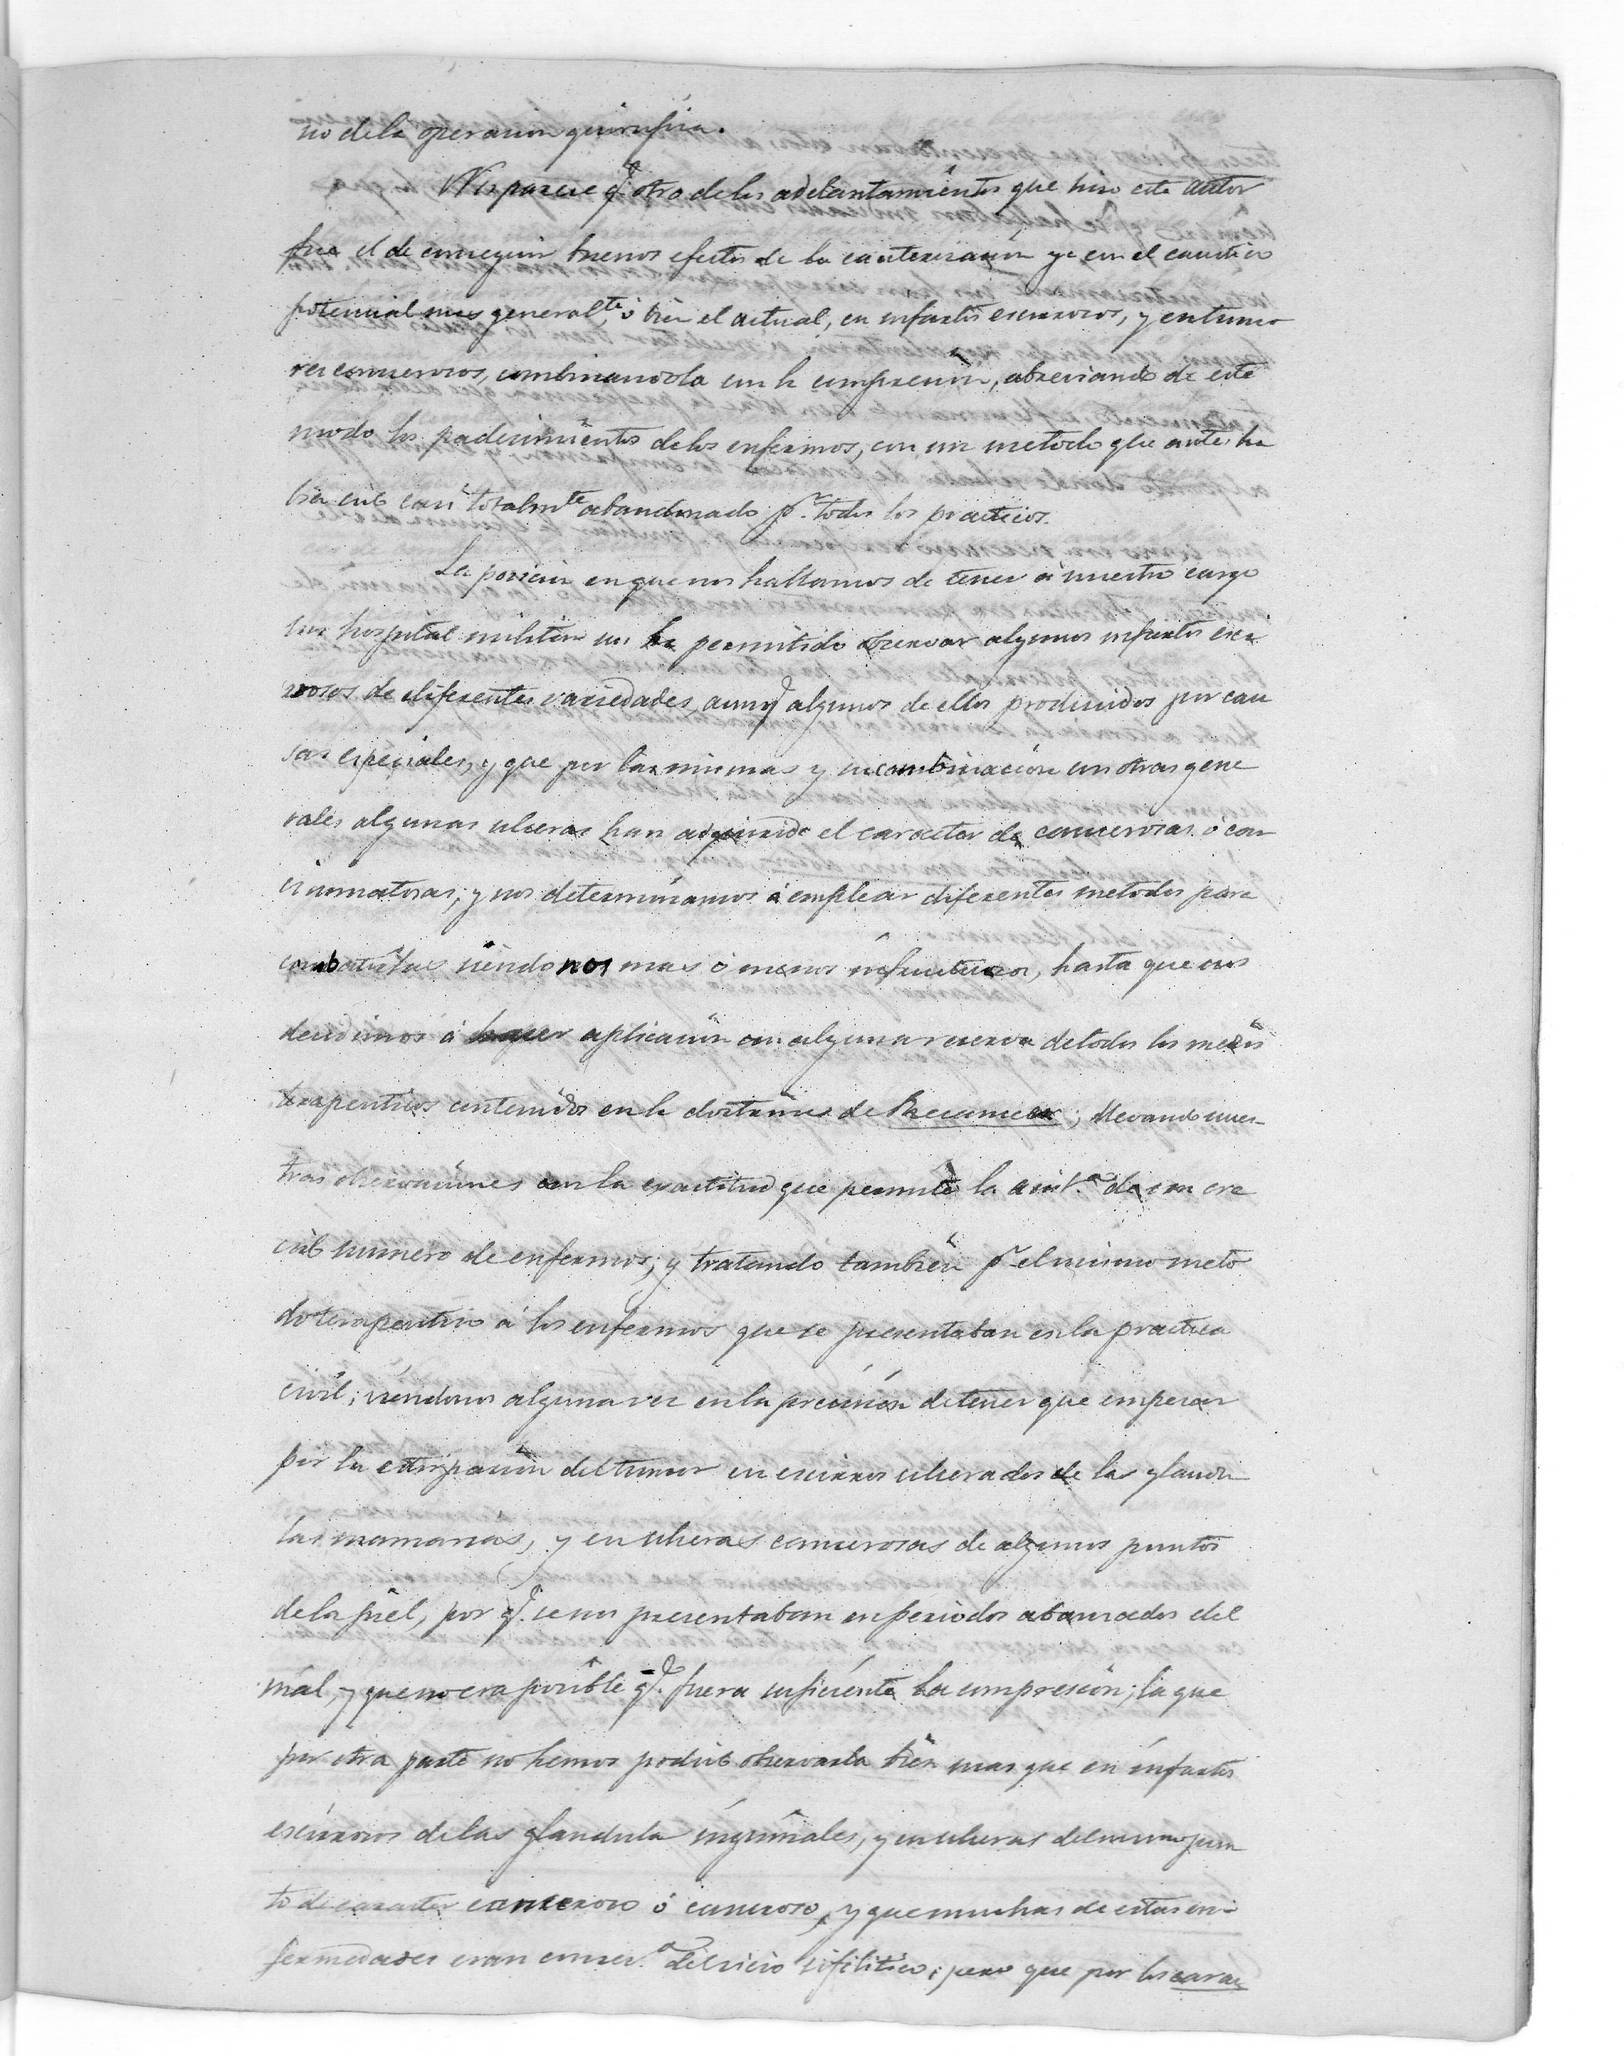 no de la operacion quirurjica.
Nos parece q.e otro de los adelantamientos que hiso este autor
fue el de conseguir buenos efectos de la cauterisacion ya con el caustico
potencial mas general.te ó bien el actual, en infartos escirrosos, y en tumo
res cancerosos, combinandola con la compresion, abreviando de este
modo los padecimientos de los enfermos, con un metodo que antes ha
bia sido casi totalm.te abandonado p.r todos los practicos.
La posicion en que nos hallamos de tener á nuestro cargo
un hospital militar nos ha permitido observar algunos infartos esci
rrosos de diferentes variedades, aunq.e algunos de ellos producidos por cau
sas especiales, y que por las mismas y su combinacion con otras gene
rales algunas ulceras han adquirido el caracter de cancerosas ó car
cinomatosas; y nos determinamos á emplear diferentes metodos para
combatirlas siendonos mas ó menos infructuosos, hasta que nos
decidimos á hacer aplicacion con alguna reserva de todos los medios
terapenticos contenidos en la doctrina de Recamier, llevando nues-
tras observaciones con la exactitud que permite la asist.a de un cre
cido numero de enfermos; y tratando tambien p.r el mismo meto
do terapeutico á los enfermos que se presentaban en la practica
civil; viendonos alguna vez en la precision de tener que empezar
por la extirpacion del tumor en escirros ulcerados de las glandu
las mamarias, y en ulceras cancerosas de algunos puntos
de la piel, por q.e se nos presentaban en periodos abansados del
mal, y que no era posible q.e fuera suficiente la compresion; la que
por otra parte no hemos podido observarla bien mas que en infartos
escirrosos de las glandula inguinales, y en ulceras del mismo pun
to de caracter canceroso ó canceroso, y que muchas de estas en-
fermedades eran consec.a del vicio sifilitico; pero que por los carac